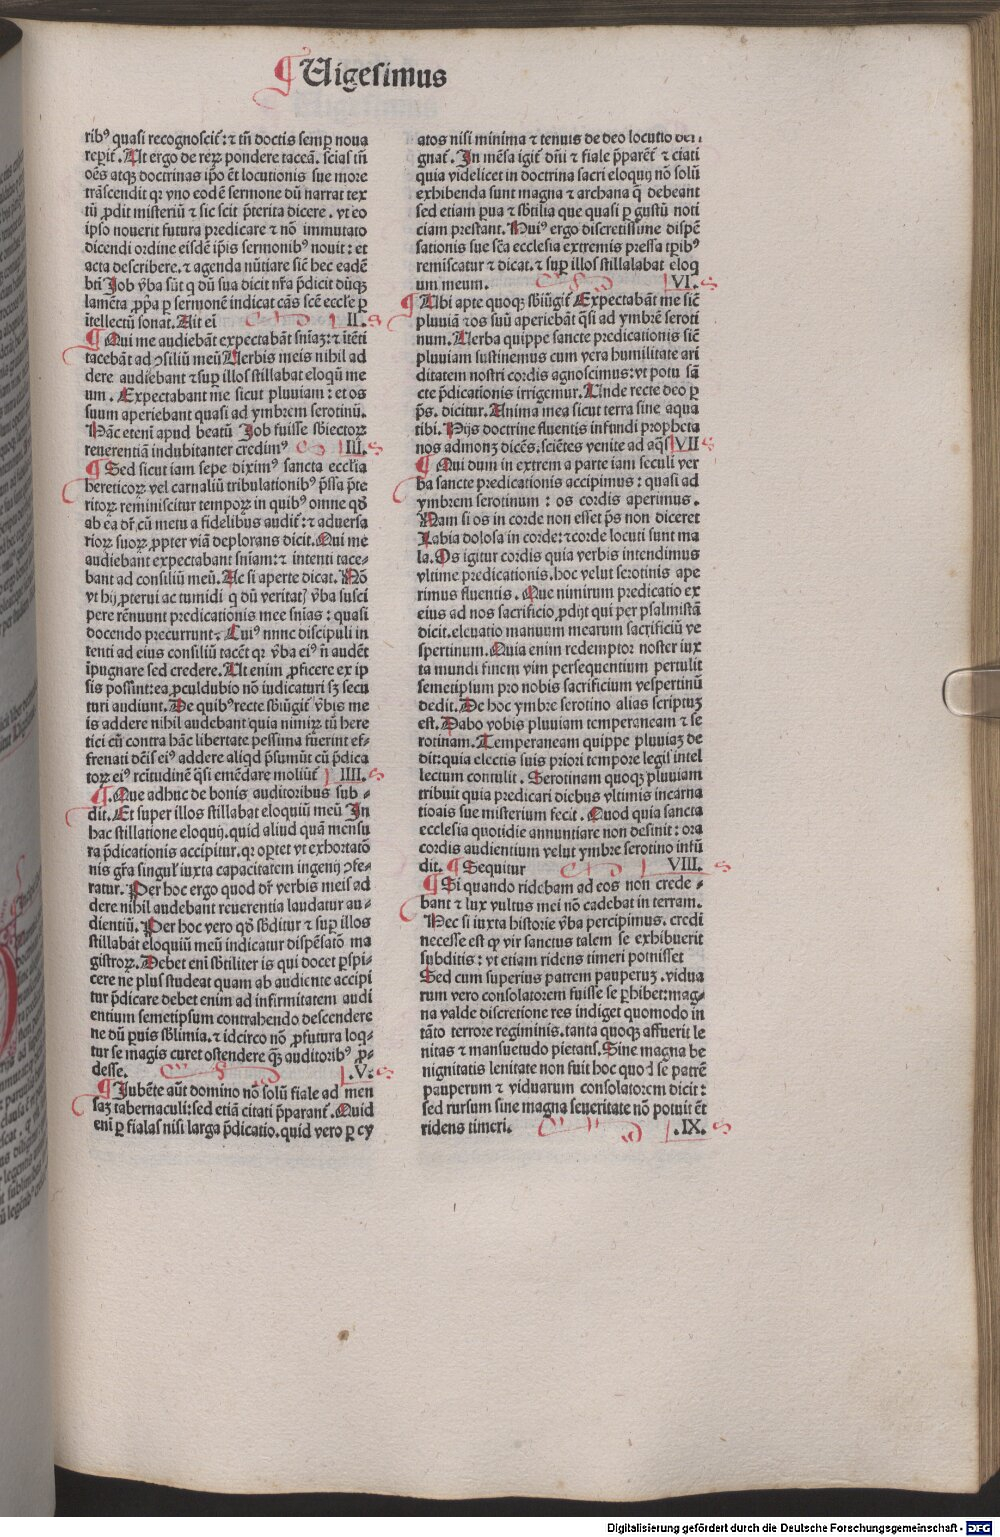 ¶ Uigesimus
ribꝰ quasi recognoscit̄: ⁊ tn̄ doctis semꝑ noua
reꝑit. At ergo de reꝝ pondere taceā. scias tn̄
oēs atqꝫ doctrinas ip̄o ēt locutionis sue more
trāscendit qꝛ vno eodē sermone dū narrat tex
tū ꝓdit misteriū ⁊ sic scit p̄terita dicere. vt eo
ipso nouerit futura predicare ⁊ nō immutato
dicendi ordine eisdē ip̄is sermonibꝰ nouit: et
acta describere. ⁊ agenda nūtiare sic̄ hec eadē
bti Job v̄ba sūt q dū sua dicit nr̄a p̄dicit dūqꝫ
lamēta ꝓp̄a ꝑ sermonē indicat cās scē eccl̄e ꝑ
ītellectū sonat. Ait ei II.
¶ Qui me audiebāt expectabāt sn̄iaꝫ: ⁊ ītēti
tacebāt ad ꝯsiliū meū Uerbis meis nihil ad
dere audiebant ⁊ suꝑ illos stillabat eloqū me
um. Expectabant me sicut pluuiam: et os
suum aperiebant quasi ad ymbrem serotinū.
Hāc eteni apud beatū Job fuisse sb̄iectoꝝ
reuerentiā indubitanter credimꝰ III.
¶ Sed sicut iam sepe diximꝰ sancta eccl̄ia
hereticoꝝ vel carnaliū tribulationibꝰ p̄ssa p̄te
ritoꝝ reminiscitur tempoꝝ in quibꝰ omne qd̄
ab ea dr̄ cū metu a fidelibus audit̄: ⁊ aduersa
rioꝝ suoꝝ ꝓpter viā deplorans dicit. Qui me
audiebant expectabant sn̄iam: ⁊ intenti tace-
bant ad consiliū meū. Ac si aperte dicat. Nō
vt hij ꝓterui ac tumidi q dū veritatꝭ v̄ba susci
pere rēnuunt predicationis mee sn̄ias: quasi
docendo precurrunt. Cuiꝰ nunc discipuli in
tenti ad eius consiliū tacēt qꝛ v̄ba eiꝰ n̄ audēt
īpugnare sed credere. Ut enim ꝓficere ex ip
sis possint: ea ꝓculdubio nō iudicaturi sꝫ secu
turi audiunt. De quibꝰ recte sb̄iūgit̄ v̄bis me
is addere nihil audebant quia nimiꝝ tū here
tici cū contra hāc libertate pessima fuerint ef-
frenati dc̄is eiꝰ addere aliqd p̄sumūt cū p̄dica
toꝝ eiꝰ rc̄itudinē q̄si emēdare moliūt̄ IIII.
¶ Que adhuc de bonis auditoribus sub-
dit. Et super illos stillabat eloquiū meū In
hac stillatione eloquij. quid aliud quā mensu
ra p̄dicationis accipitur. qꝛ oꝑtet vt exhortatō
nis gr̄a singul̓ iuxta capacitatem ingenij ꝯfe-
ratur. Per hoc ergo quod dr̄ verbis meis ad
dere nihil audebant reuerentia laudatur au-
dientiū. Per hoc vero qd̄ sb̄ditur ⁊ suꝑ illos
stillabāt eloquiū meū indicatur dispēsatō ma
gistroꝝ. Debet eni sb̄tiliter is qui docet ꝑspi-
cere ne plus studeat quam ab audiente accipi
tur p̄dicare debet enim ad infirmitatem audi
entium semetipsum contrahendo descendere
ne dū ꝑuis sb̄limia. ⁊ idcirco nō ꝓfutura loq-
tur se magis curet ostendere qꝫ auditoribꝰ ꝓ-
desse. .V.
¶ Jubēte aūt domino nō solū fiale ad men
saꝫ tabernaculi: sed etiā citati p̄parant̄. Quid
eni ꝑ fialas nisi larga p̄dicatio. quid vero ꝑ cy
atos nisi minima ⁊ tenuis de deo locutio desi
gnat̄. In mēsa igit̄ dn̄i ⁊ fiale p̄parēt̄ ⁊ ciati
quia videlicet in doctrina sacri eloquij nō solū
exhibenda sunt magna ⁊ archana q̄ debeant
sed etiam ꝑua ⁊ sb̄tilia que quasi ꝑ gustū noti
ciam prestant. Huiꝰ ergo discretissime dispē
sationis sue sc̄a ecclesia extremis pressa tꝑibꝰ
remiscatur ⁊ dicat. ⁊ suꝑ illos stillalabat eloq
um meum. VI.
¶ Ubi apte quoqꝫ sb̄iūgit̄ Expectabāt me sic̄
pluuiā ⁊ os suū aperiebāt q̄si ad ymbrē seroti
num. Uerba quippe sancte predicationis sic̄
pluuiam sustinemus cum vera humilitate ari
ditatem nostri cordis agnoscimus: vt potu sā
cte p̄dicationis irrigemur. Unde recte deo ꝑ
p̄s. dicitur. Anima mea sicut terra sine aqua
tibi. Hijs doctrine fluentis infundi propheta
nos admonꝫ dicēs: sciētes venite ad aq̄s VII
¶ Qui dum in extrem a parte iam seculi ver
ba sancte predicationis accipimus: quasi ad
ymbrem serotinum: os cordis aperimus.
Nam si os in corde non esset p̄s non diceret
Labia dolosa in corde: ⁊ corde locuti sunt ma
la. Os igitur cordis quia verbis intendimus
vltime predicationis. hoc velut serotinis ape
rimus fluentis. Que nimirum predicatio ex
eius ad nos sacrificio ꝓdijt qui per psalmistā
dicit. eleuatio manuum mearum sacrificiū ve
spertinum. Quia enim redemptor noster iux
ta mundi finem vim persequentium pertulit
semetipsum pro nobis sacrificium vespertinū
dedit. De hoc ymbre serotino alias scriptuꝫ
est. Dabo vobis pluuiam temperaneam ⁊ se
rotinam. Temperaneam quippe pluuiaꝫ de
dit: quia electis suis priori tempore legis intel
lectum contulit. Serotinam quoqꝫ pluuiam
tribuit quia predicari diebus vltimis incarna
tioais sue misterium fecit. Quod quia sancta
ecclesia quotidie annuntiare non desinit: ora
cordis audientium velut ymbre serotino infū
dit. ¶ Sequitur VIII.
¶ Si quando ridebam ad eos non crede-
bant ⁊ lux vultus mei nō cadebat in terram.
Hec si iuxta historie v̄ba percipimus. credi
necesse est ꝙ vir sanctus talem se exhibuerit
subditis: vt etiam ridens timeri potnisset
Sed cum superius patrem pauperuꝫ. vidua
rum vero consolatorem fuisse se ꝑhibet: mag-
na valde discretione res indiget quomodo in
tāto terrore regiminis. tanta quoqꝫ affuerit le
nitas ⁊ mansuetudo pietatis. Sine magna be
nignitatis lenitate non fuit hoc quod se patrē
pauperum ⁊ viduarum consolatorem dicit:
sed rursum sine magna seueritate nō potuit ēt
ridens timeri. .IX.
Digitalisierung gefördert durch die Deutsche Forschungsgemeinschaft - DFG